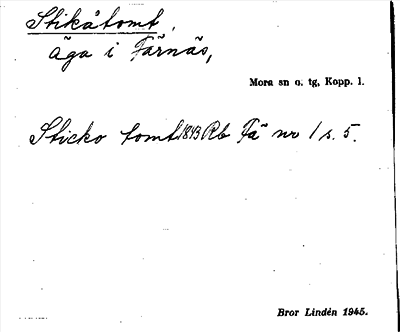 Stikåtomt,
äga i Färnäs,
Mora sn o. tg, Kopp. l.
Sticko tomt 1843 Rb Fä nr 1 s. 5.
Bror Lindén 1945.